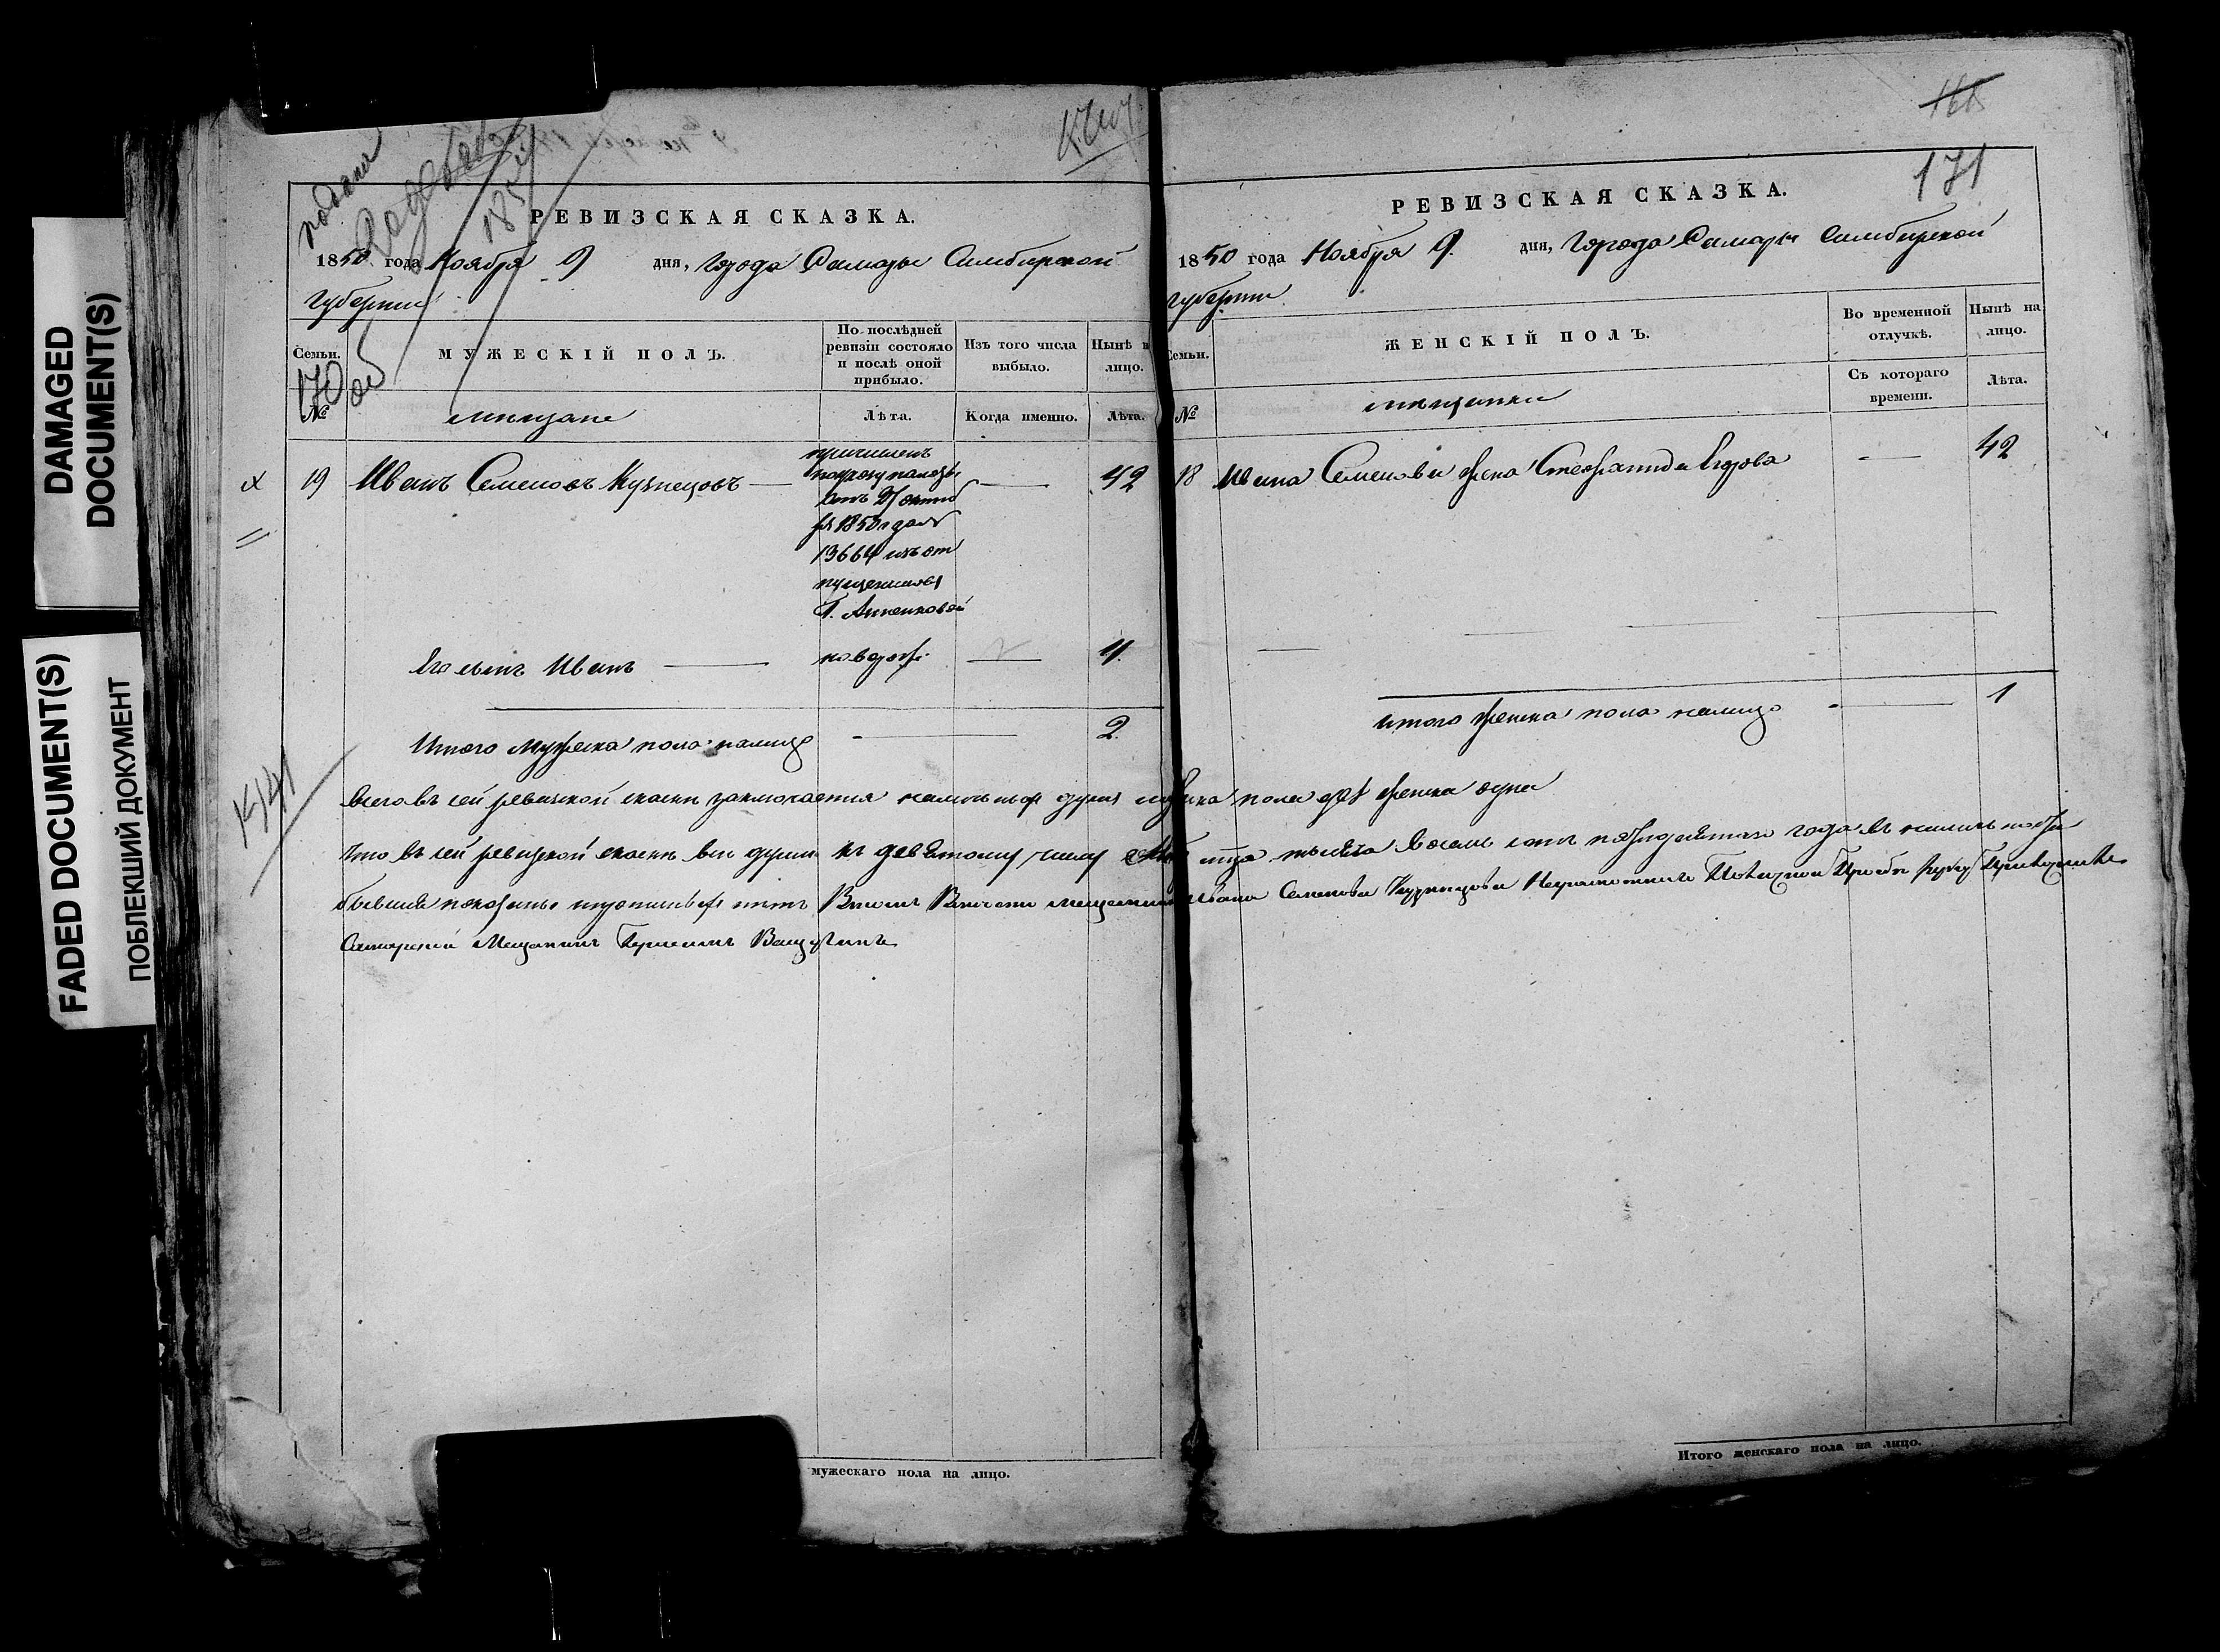 DAMAGED
DOCUMENT(S)
FADED DOCUMENT(S)
ПОБЛЕКШИЙ ДОКУМЕНТ
подана
РЕВИЗСКАЯ СКАЗКА.
1850 года Ноября 9 дня, города Самары Симбирской
губернии
Семьи.
МУЖЕСКІЙ ПОЛЪ.
По послѣдней
ревизіи состояло
и послѣ оной
прибыло.
Изъ того числа
выбыло.
Нынѣ н
лицо.
170
№
мѣщане
Лѣта.
Когда именно.
Лѣта.
19 Иванъ Семеновъ Кузнецовъ
причисленъ
по указу палаты
отъ 21 октяб
ря 1850 года №
13664 изъ от
пущенныхъ
Г. Анненковой
42
Его сынъ Иванъ
новорож.
4.
Итого мужеска пола налицо
2.
РЕВИЗСКАЯ СКАЗКА.
171
1850 года Ноября 9. дня, Города Самары Симбирской
губернии.
Семьи.
ЖЕНСКІЙ ПОЛЪ.
Во временной
отлучкѣ.
Нынѣ на
лицо.
№
мѣщанки
Съ котораго
времени.
Лѣта.
18 Ивана Семенова жена Степанида Егорова
42
итого женска пола налицо
1
Всего въ сей ревизской сказкѣ заключается наличныхъ душъ мужска пола двѣ женска одна
Что въ сей ревизской сказкѣ все души къ девятому числу мца тысяча восемь сотъ пятьдесятаго года въ наличности
бывшія показаны и прописныхъ нѣтъ Въ томъ Вместо мещанина Ивана Семенова Кузнецова Неграмотнаго По ево личной Прозбе руку Приложилъ
Самарской Мещанинъ
мужескаго пола на лицо.
Итого женскаго пола на лицо.